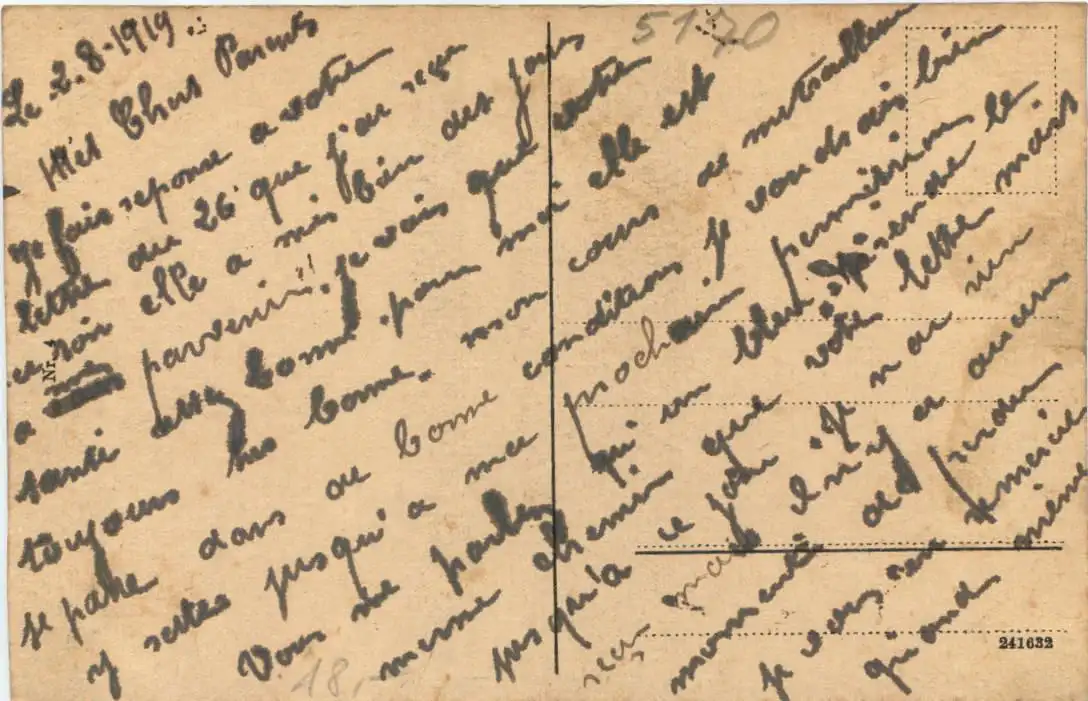 Le 2-8-1919
Mes Chers Parents
Je fais reponse a votre
lettre du 26 que j'ai reçu
ce soir elle a mis bien des jours
a me parvenir. je vois que votre
santé est bonne pour moi elle est
toujours tres bonne. mon cours de
se passe dans de bonne conditions je voudrais bien
y rester jusqu'a ma prochain permission
Vous me parlez qu'un
meme chemin que votre lettre mais
jusqu'a ce jour je n'ai rien
reçu mais il n'y a aucun
moment de perdu
je vous en remercie
quand même
5170
18
Nr.
241632